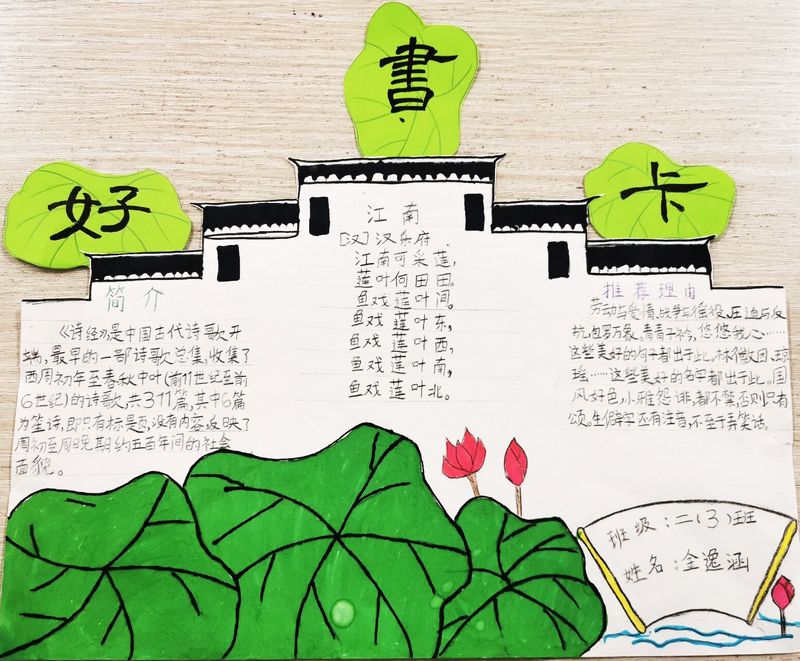 好書卡
简介
《诗经》是中国古代诗歌开
端,最早的一部诗歌总集,收集了
西周初年至春秋中叶(前11世纪至前
6世纪)的诗歌,共311篇,其中6篇
为笙诗,即只有标是页,没有内容,反映了
周初至周晚期约五百年间的社会
面貌。
江南
[汉]汉乐府
江南可采莲,
莲叶何田田。
鱼戏莲叶间。
鱼戏莲叶东,
鱼戏莲叶西,
鱼戏莲叶南,
鱼戏莲叶北。
推荐理由
劳动与爱情、战争与徭役、压迫与反
抗,包罗万象。青青子衿,悠悠我心……
这些美好的句子都出于此。林徽因、琼
瑶……这些美好的名字都出于此。国
风好色,小雅怨诽,都不禁,否则只有
颂。生僻字还有注音,不至于弄笑话。
班级:二(3)班
姓名:金逸涵